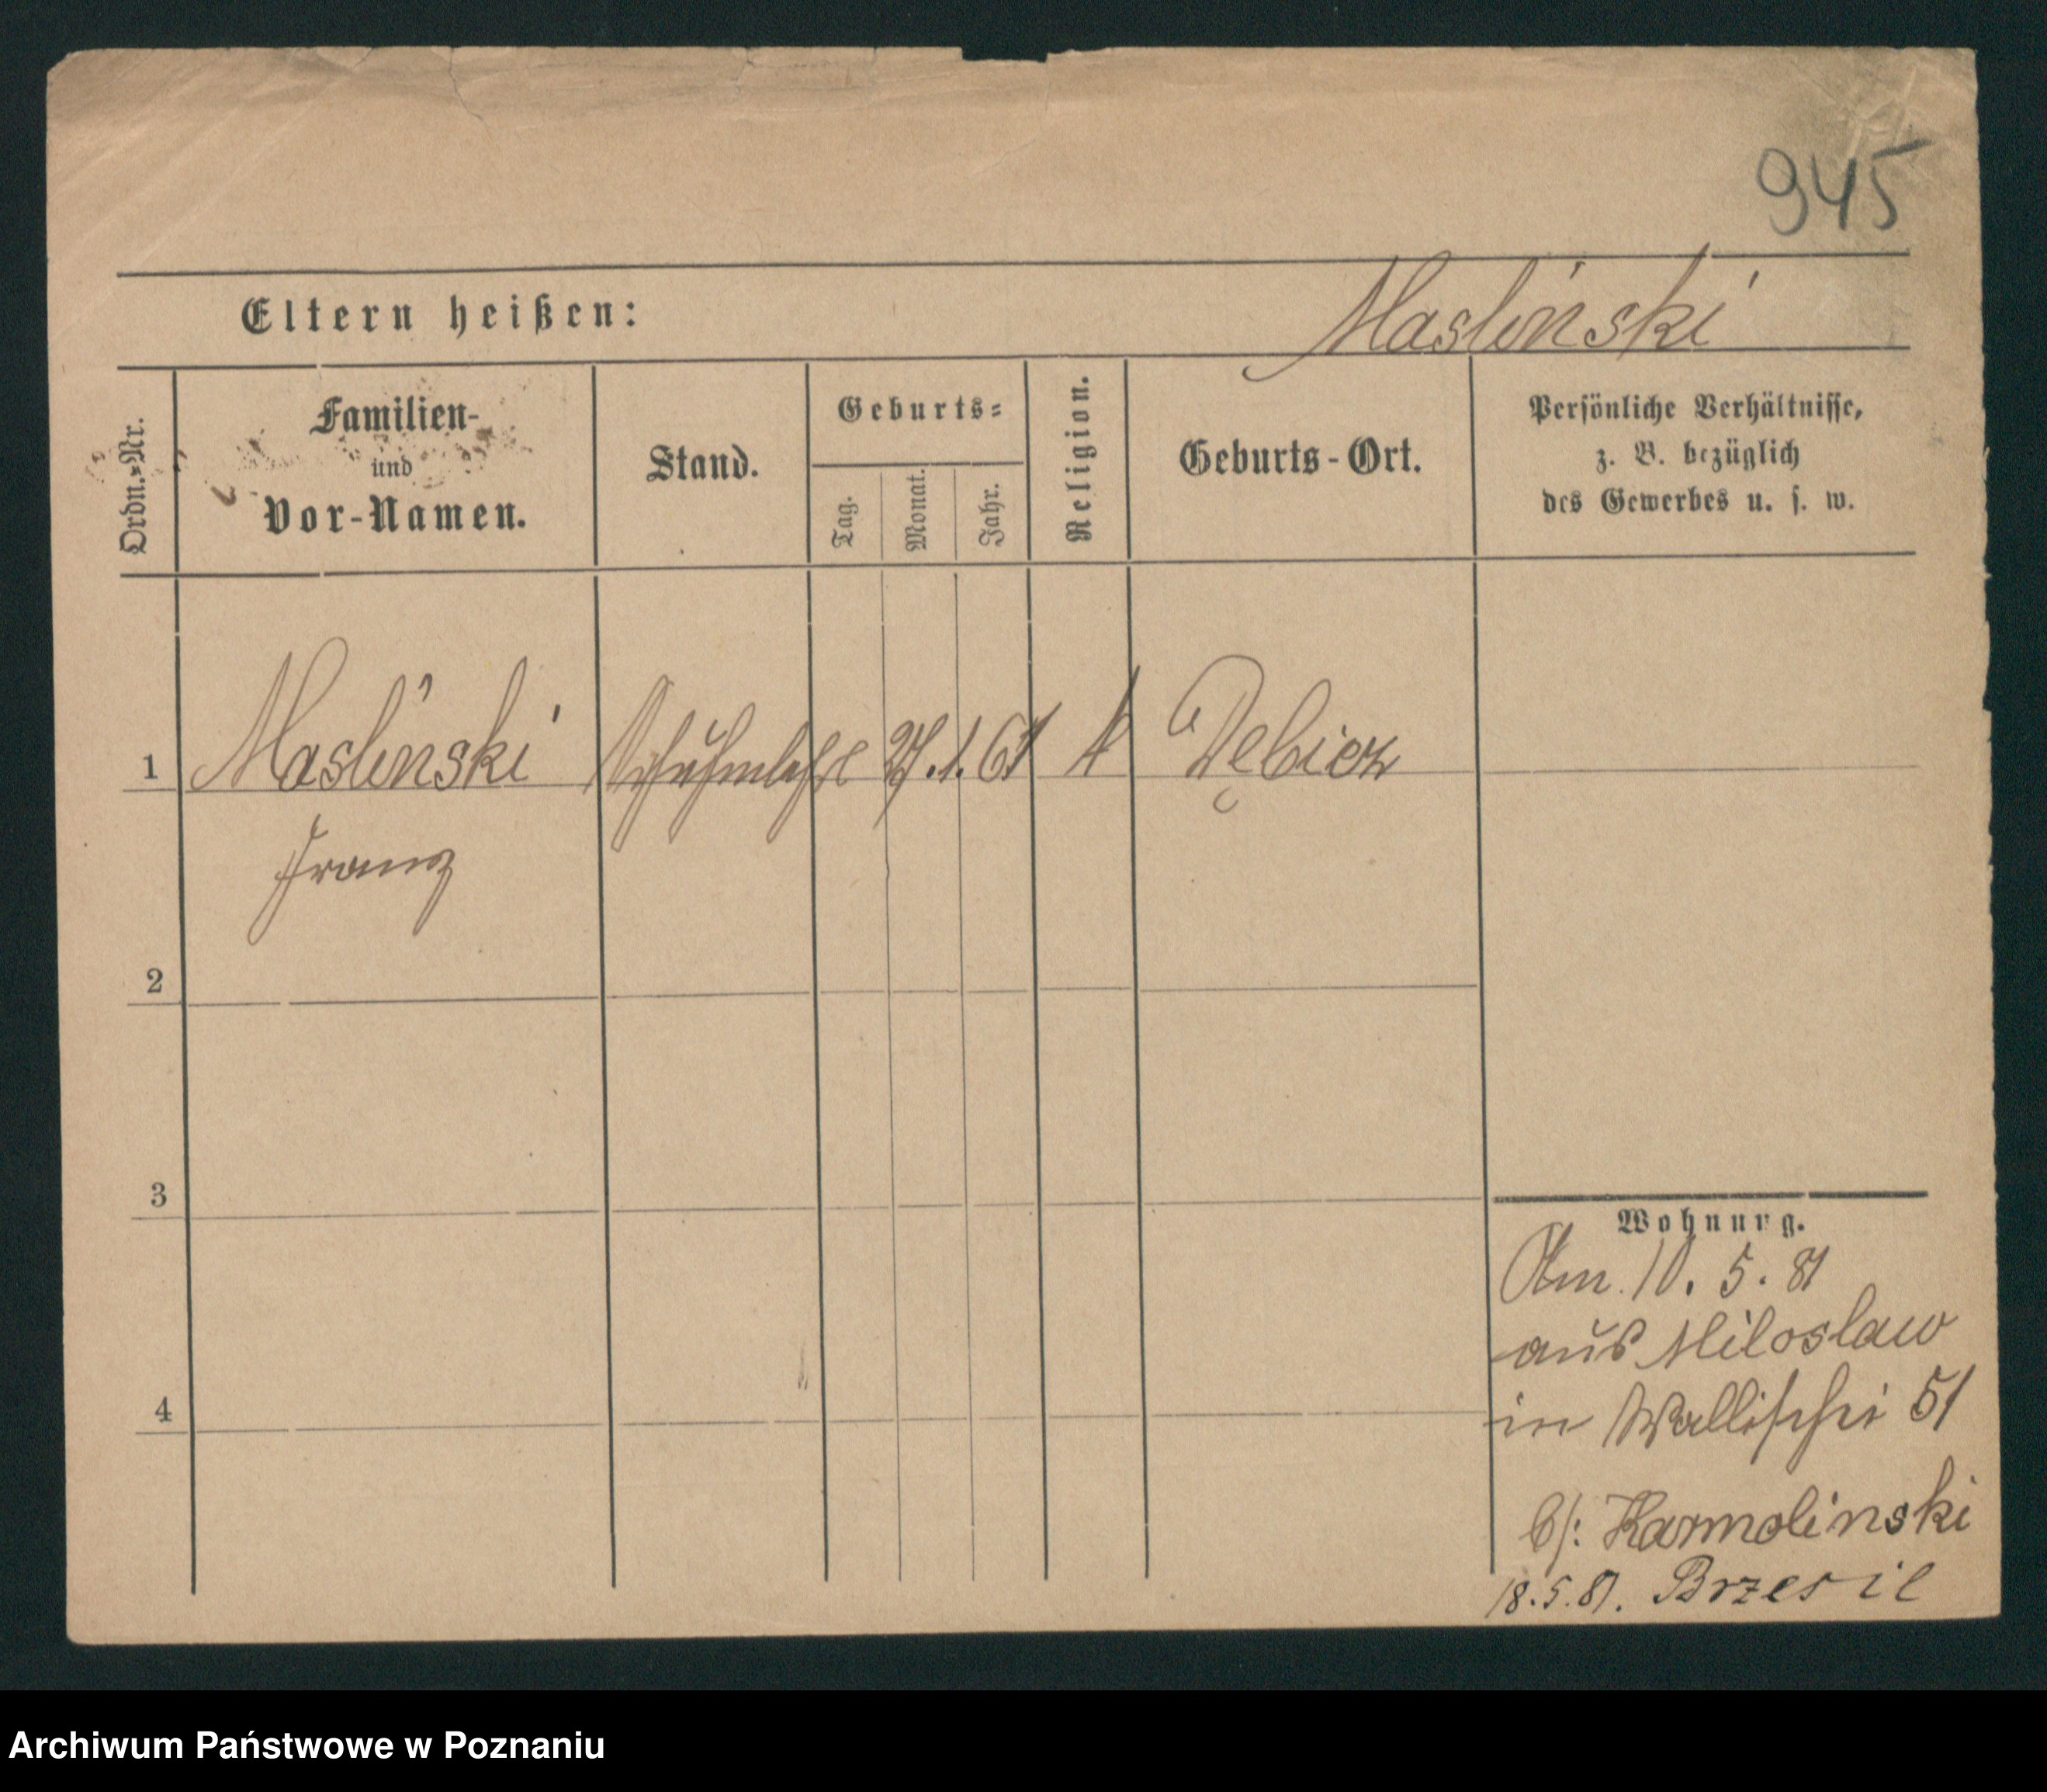 945
Eltern heißen:
Maslinski
Ordn.-Nr.
Familien-
und
Vor-Namen.
Stand.
Geburts-
Tag.
Monat.
Jahr.
Religion.
Geburts-Ort.
Persönliche Verhältnisse,
z. B. bezüglich
des Gewerbes u. s. w.
1 Maslinski 27. 1. 61 k Dębicz
Franz
2
3
4
Wohnung.
Am 10. 5. 81
aus Miloslaw
in Wallischei 51
b/: Karmolinski
18.5.81.
Archiwum Państwowe w Poznaniu